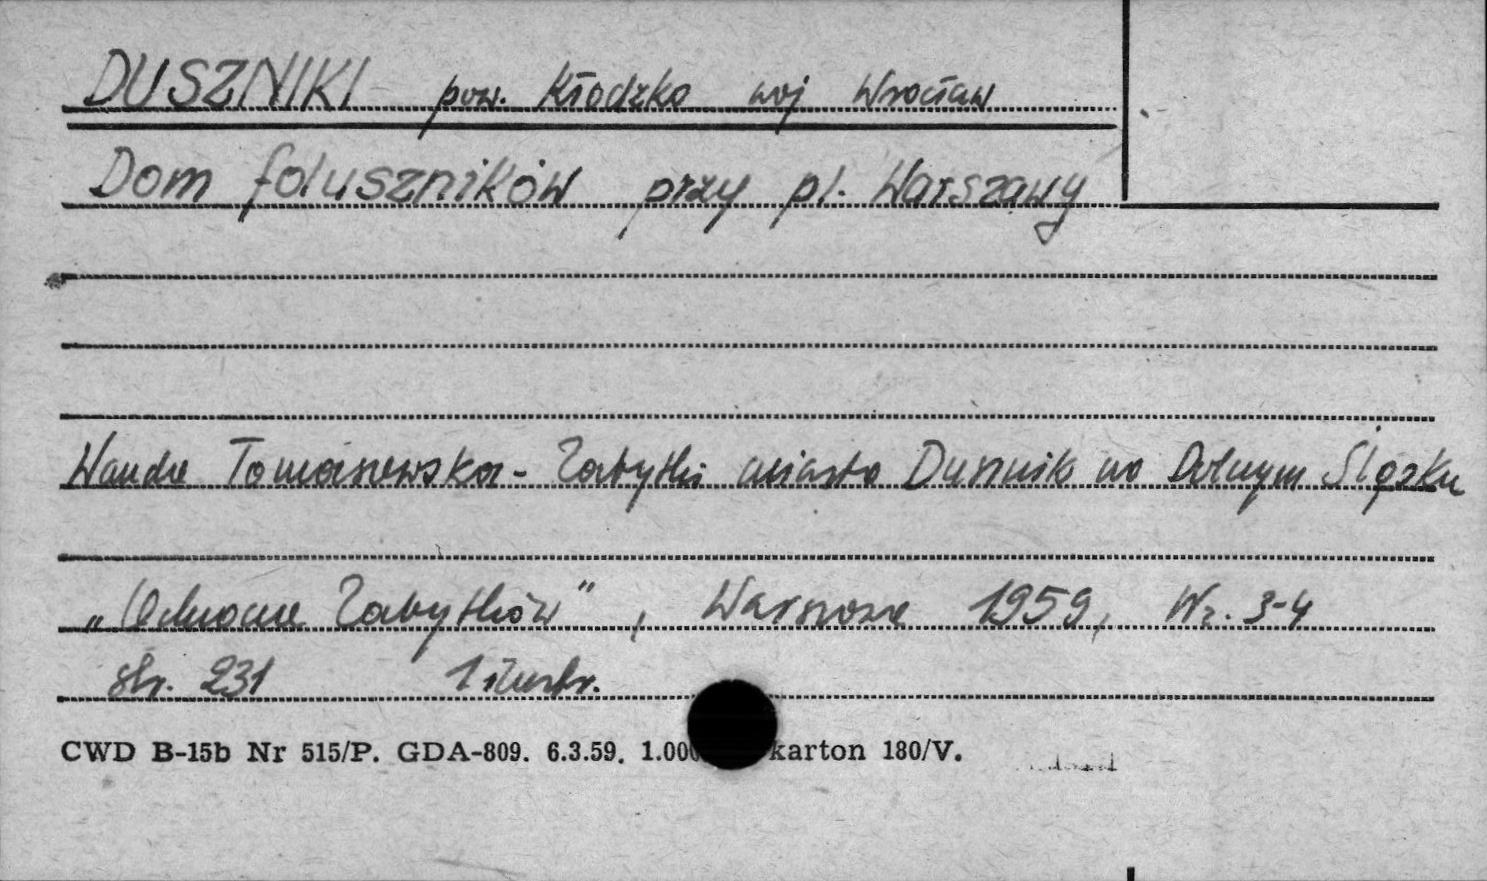 DUSZNIKI pow. Kłodzko woj Wrocław
Dom foluszników przy pl. Warszawy
Wanda Tomaszewska - Zabytki miasta Dusznik na Dolnym Śląsku
„Ochrona Zabytków", Warszawa 1959, Nr. 3-4
str. 231 1 ilustr.
CWD B-15b Nr 515/P. GDA-809. 6.3.59. karton 180/V.